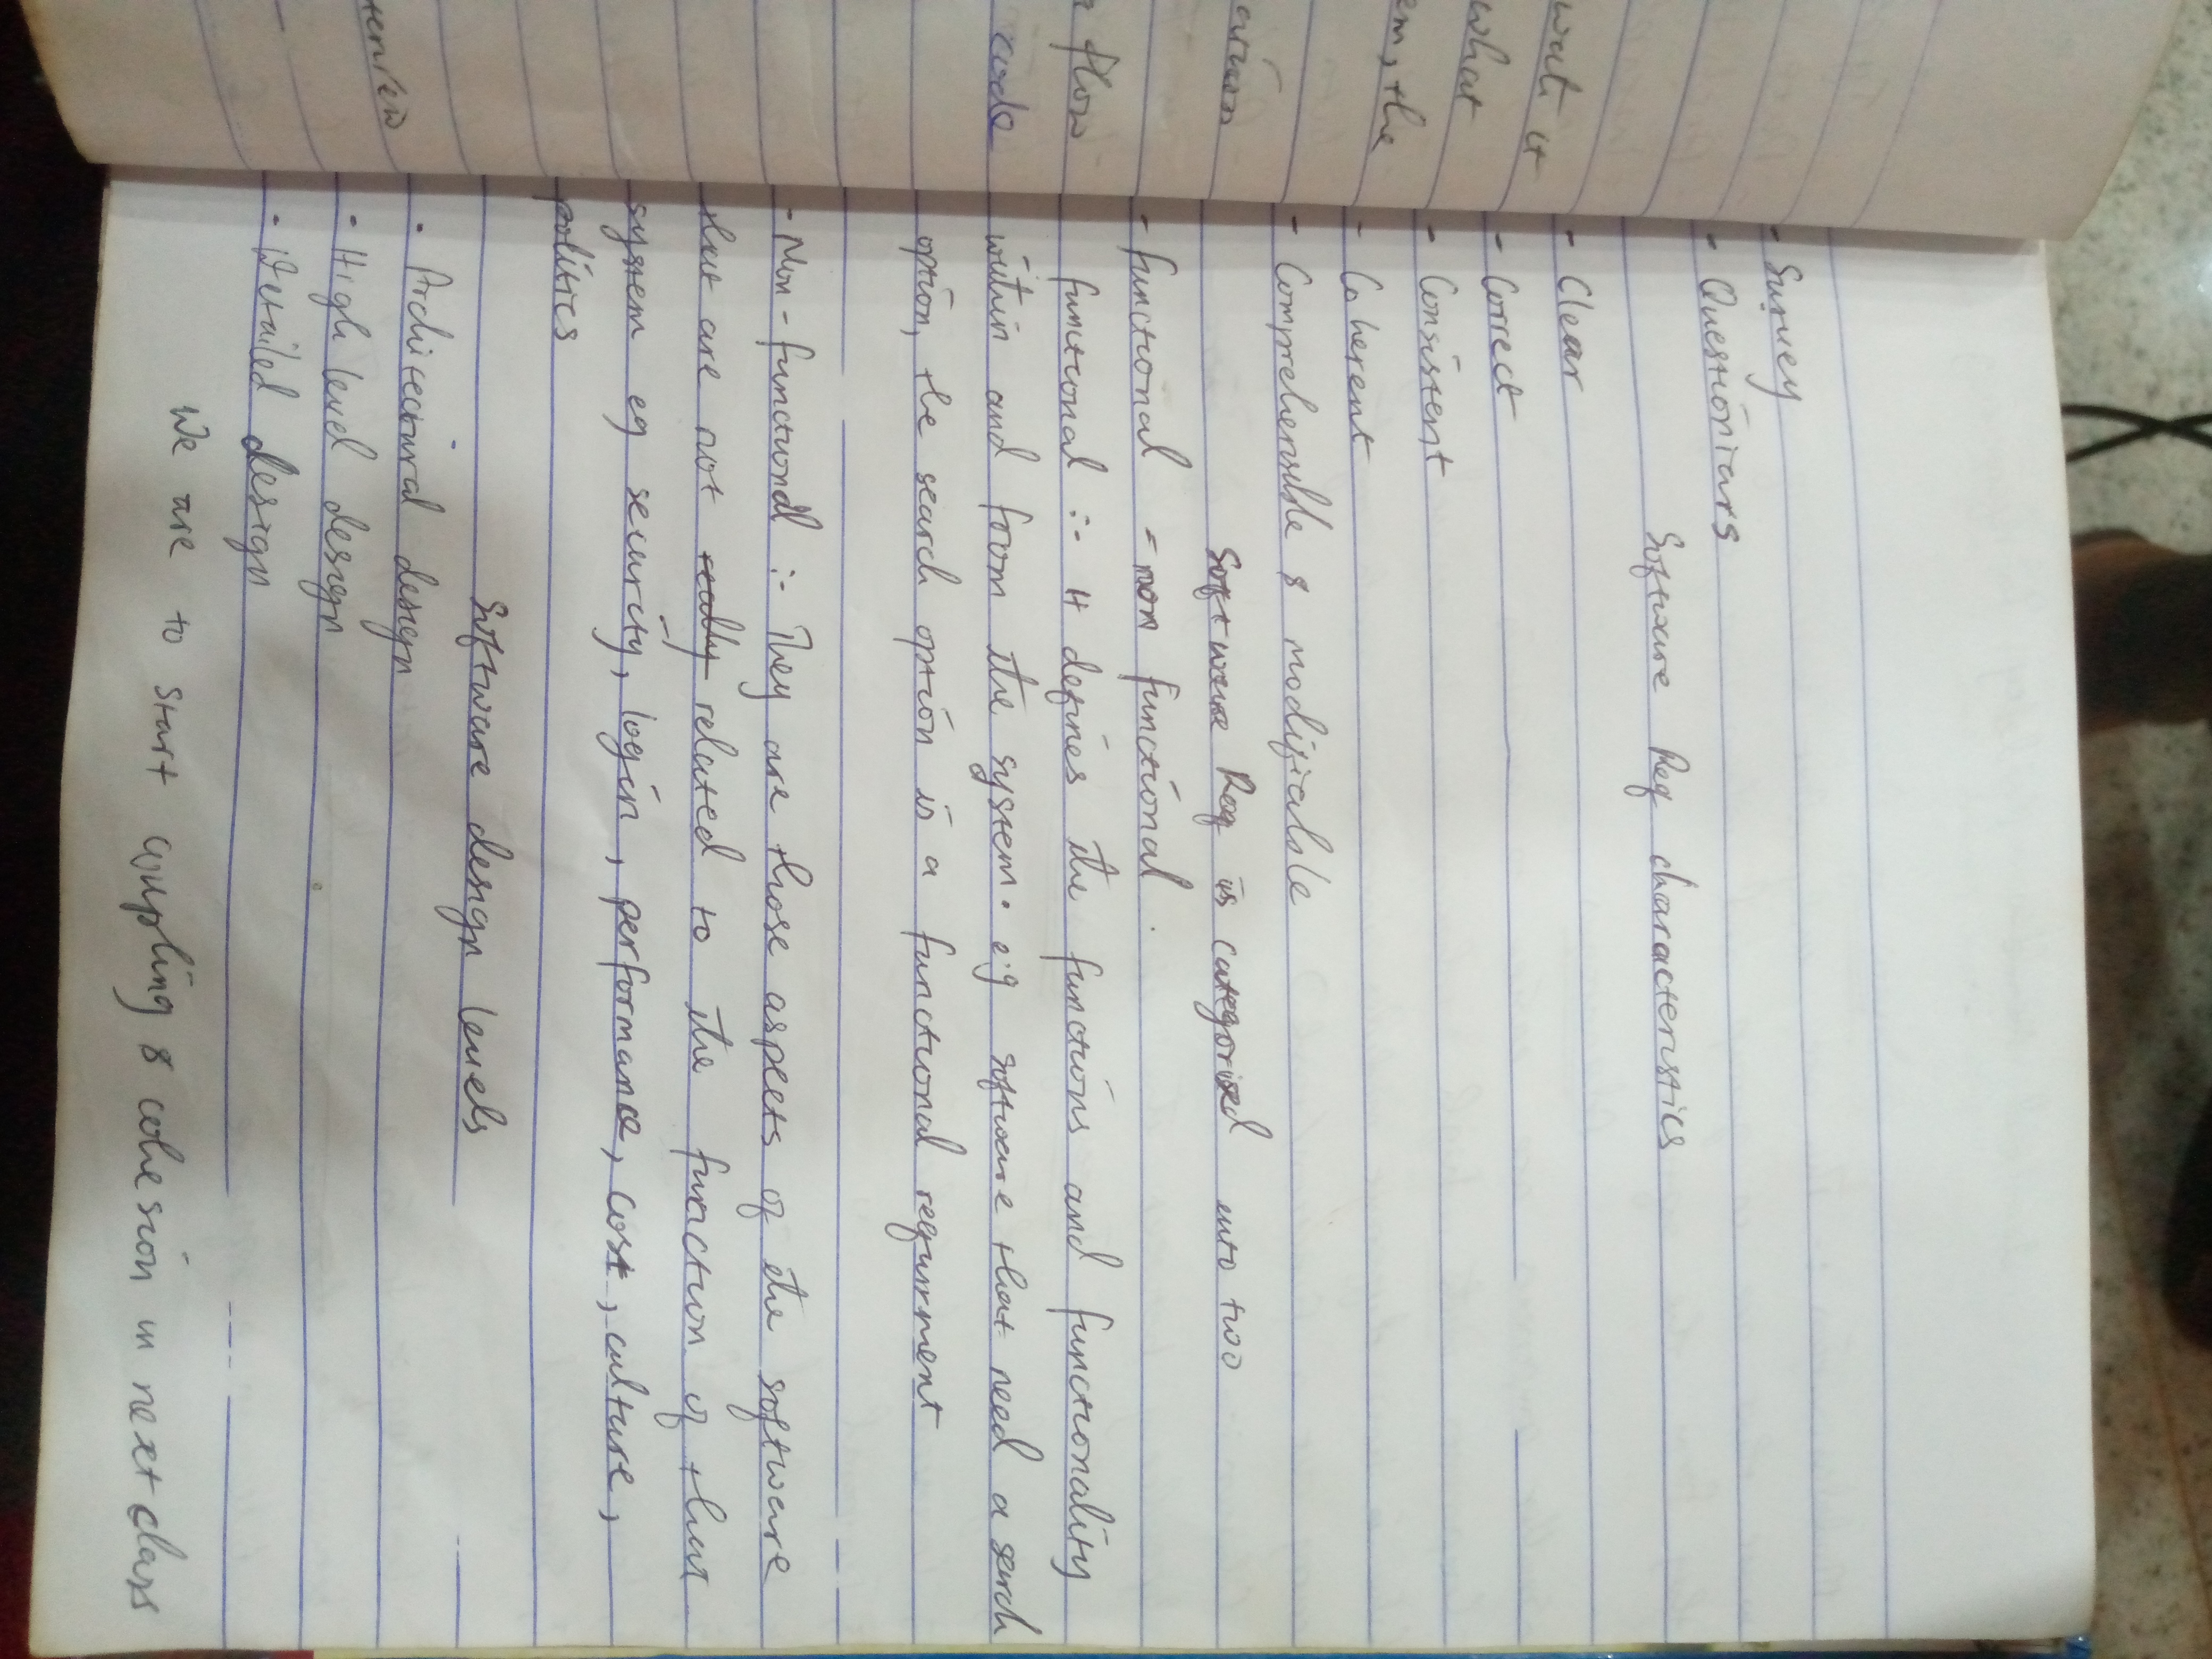 - Survey
- Questioniars
Software Req characteristics
- Clear
- Correct
- Consistent
- Coherent
- Comprehensible & modifiable
Software Req is categorised into two
- functional - non functional.
functional :- It defines the functions and functionality
within and from the system. e.g software that need a search
option, the search option is a functional requirment
- Non-functional :- They are those aspects of the software
that are not really related to the function of that
system eg security, login, performance, cost, culture,
politics
Software design levels
- Architectural design
- High level design
- Detailed design
We are to start coupling & cohesion in next class
write it
what
em, the
ation
flow
code
terview